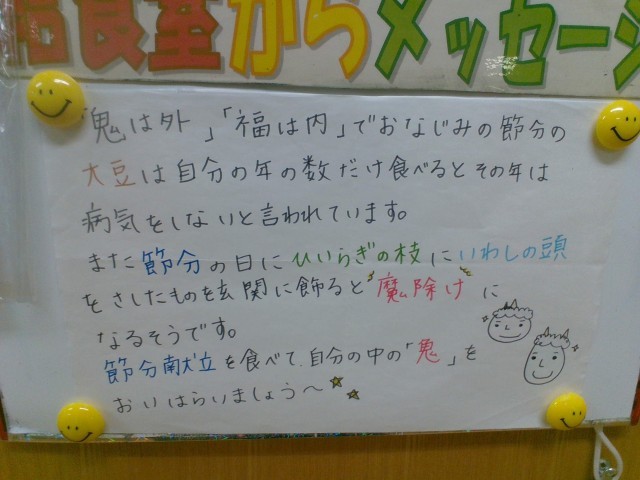 給食室からメッセージ
「鬼は外」「福は内」でおなじみの節分の
大豆は自分の年の数だけ食べるとその年は
病気をしないと言われています。
また節分の日にひいらぎの枝にいわしの頭
をさしたものを玄関に飾ると魔除けに
なるそうです。
節分献立を食べて、自分の中の「鬼」を
おいはらいましょう〜